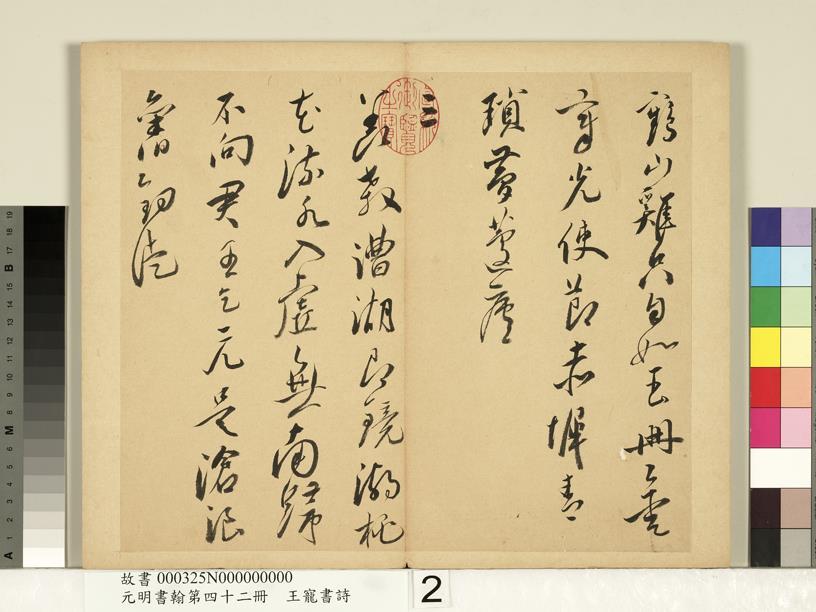 鶴山雞只自如玉冊金
章光使節赤墀青
瑣夢蘧廬
教漕湖即鏡湖桃
花流水入虛無南歸
不向君王乞元是滄浪
釣徒
故書 000325N000000000
元明書翰第四十二冊 王寵書詩
2
A 1 2 3 4 5 6 M 8 9 10 11 12 13 14 15 B 17 18 19